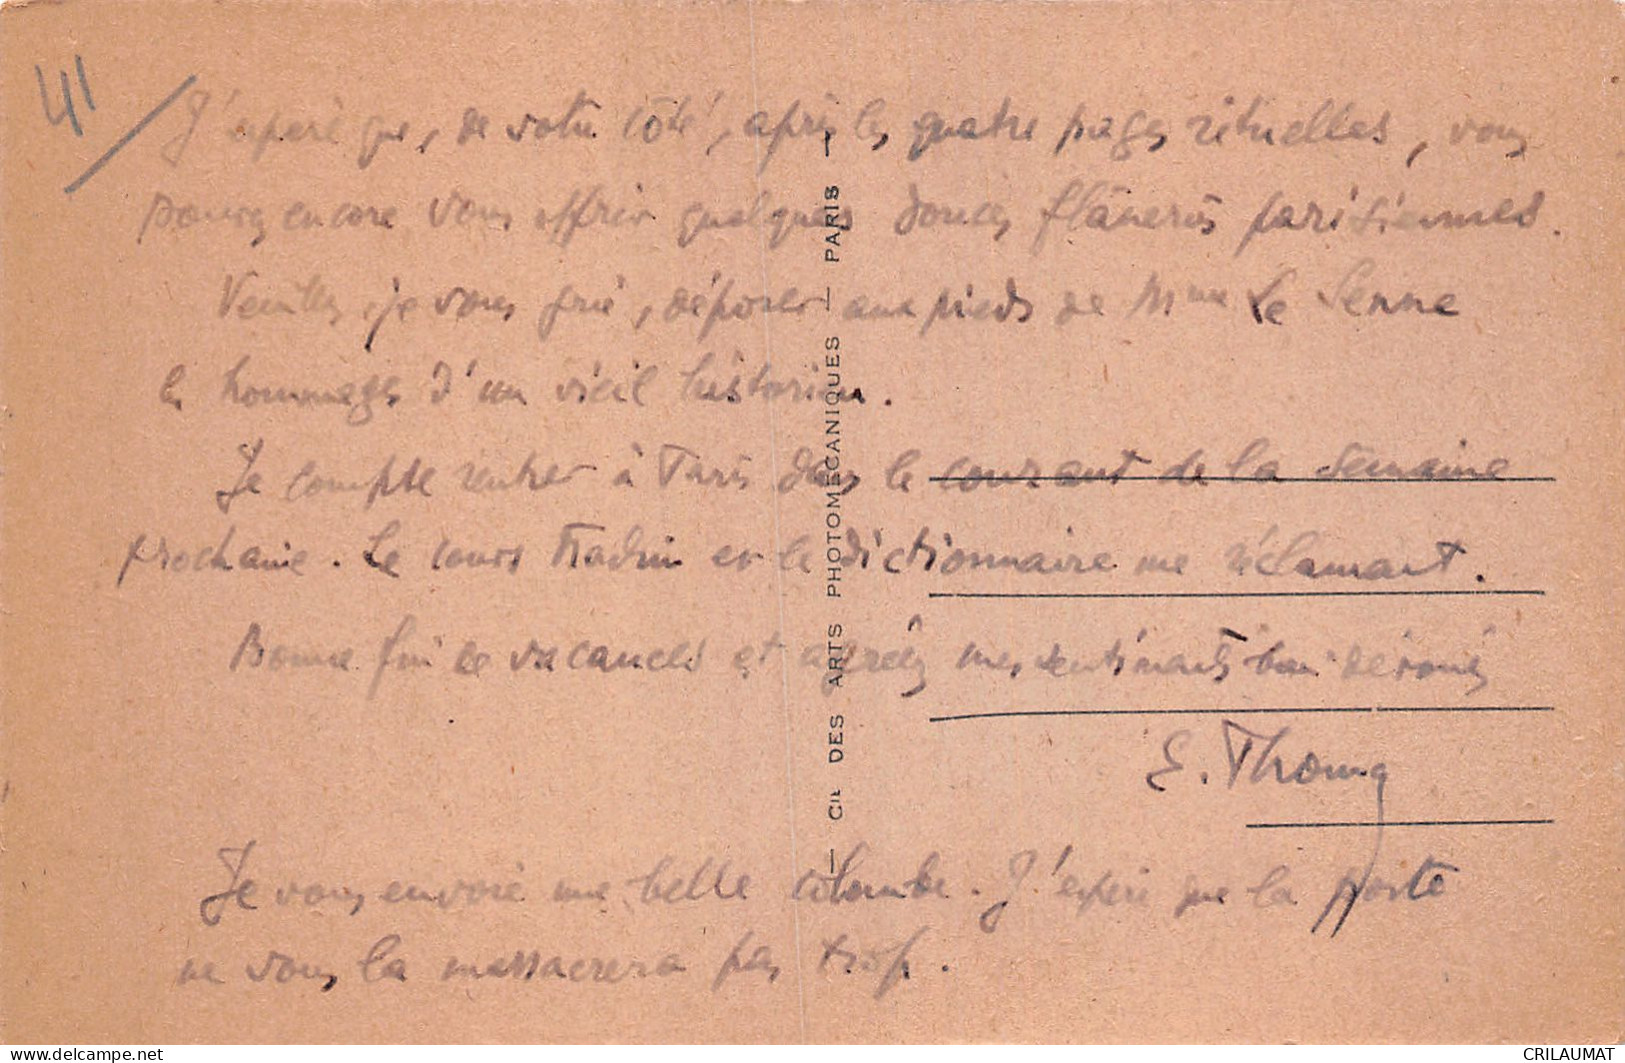 41
J'espère que, de votre côté, après les quatre pages rituelles, vous
pourrez encore vous offrir quelques douces flâneries parisiennes.
Veuillez, je vous prie, déposer aux pieds de Mme Le Senne
les hommages d'un vieil historien.
Je compte rentrer à Paris dans le courant de la semaine
prochaine. Le cours et le dictionnaire me réclament.
Bonne fin de vacances et agréez mes sentiments bien dévoués
E. Thomas
Je vous envoie une belle colombe. J'espère que la poste
ne vous la massacrera pas trop.
— CIE DES ARTS PHOTOMECANIQUES — PARIS —
delcampe.net
CRILAUMAT